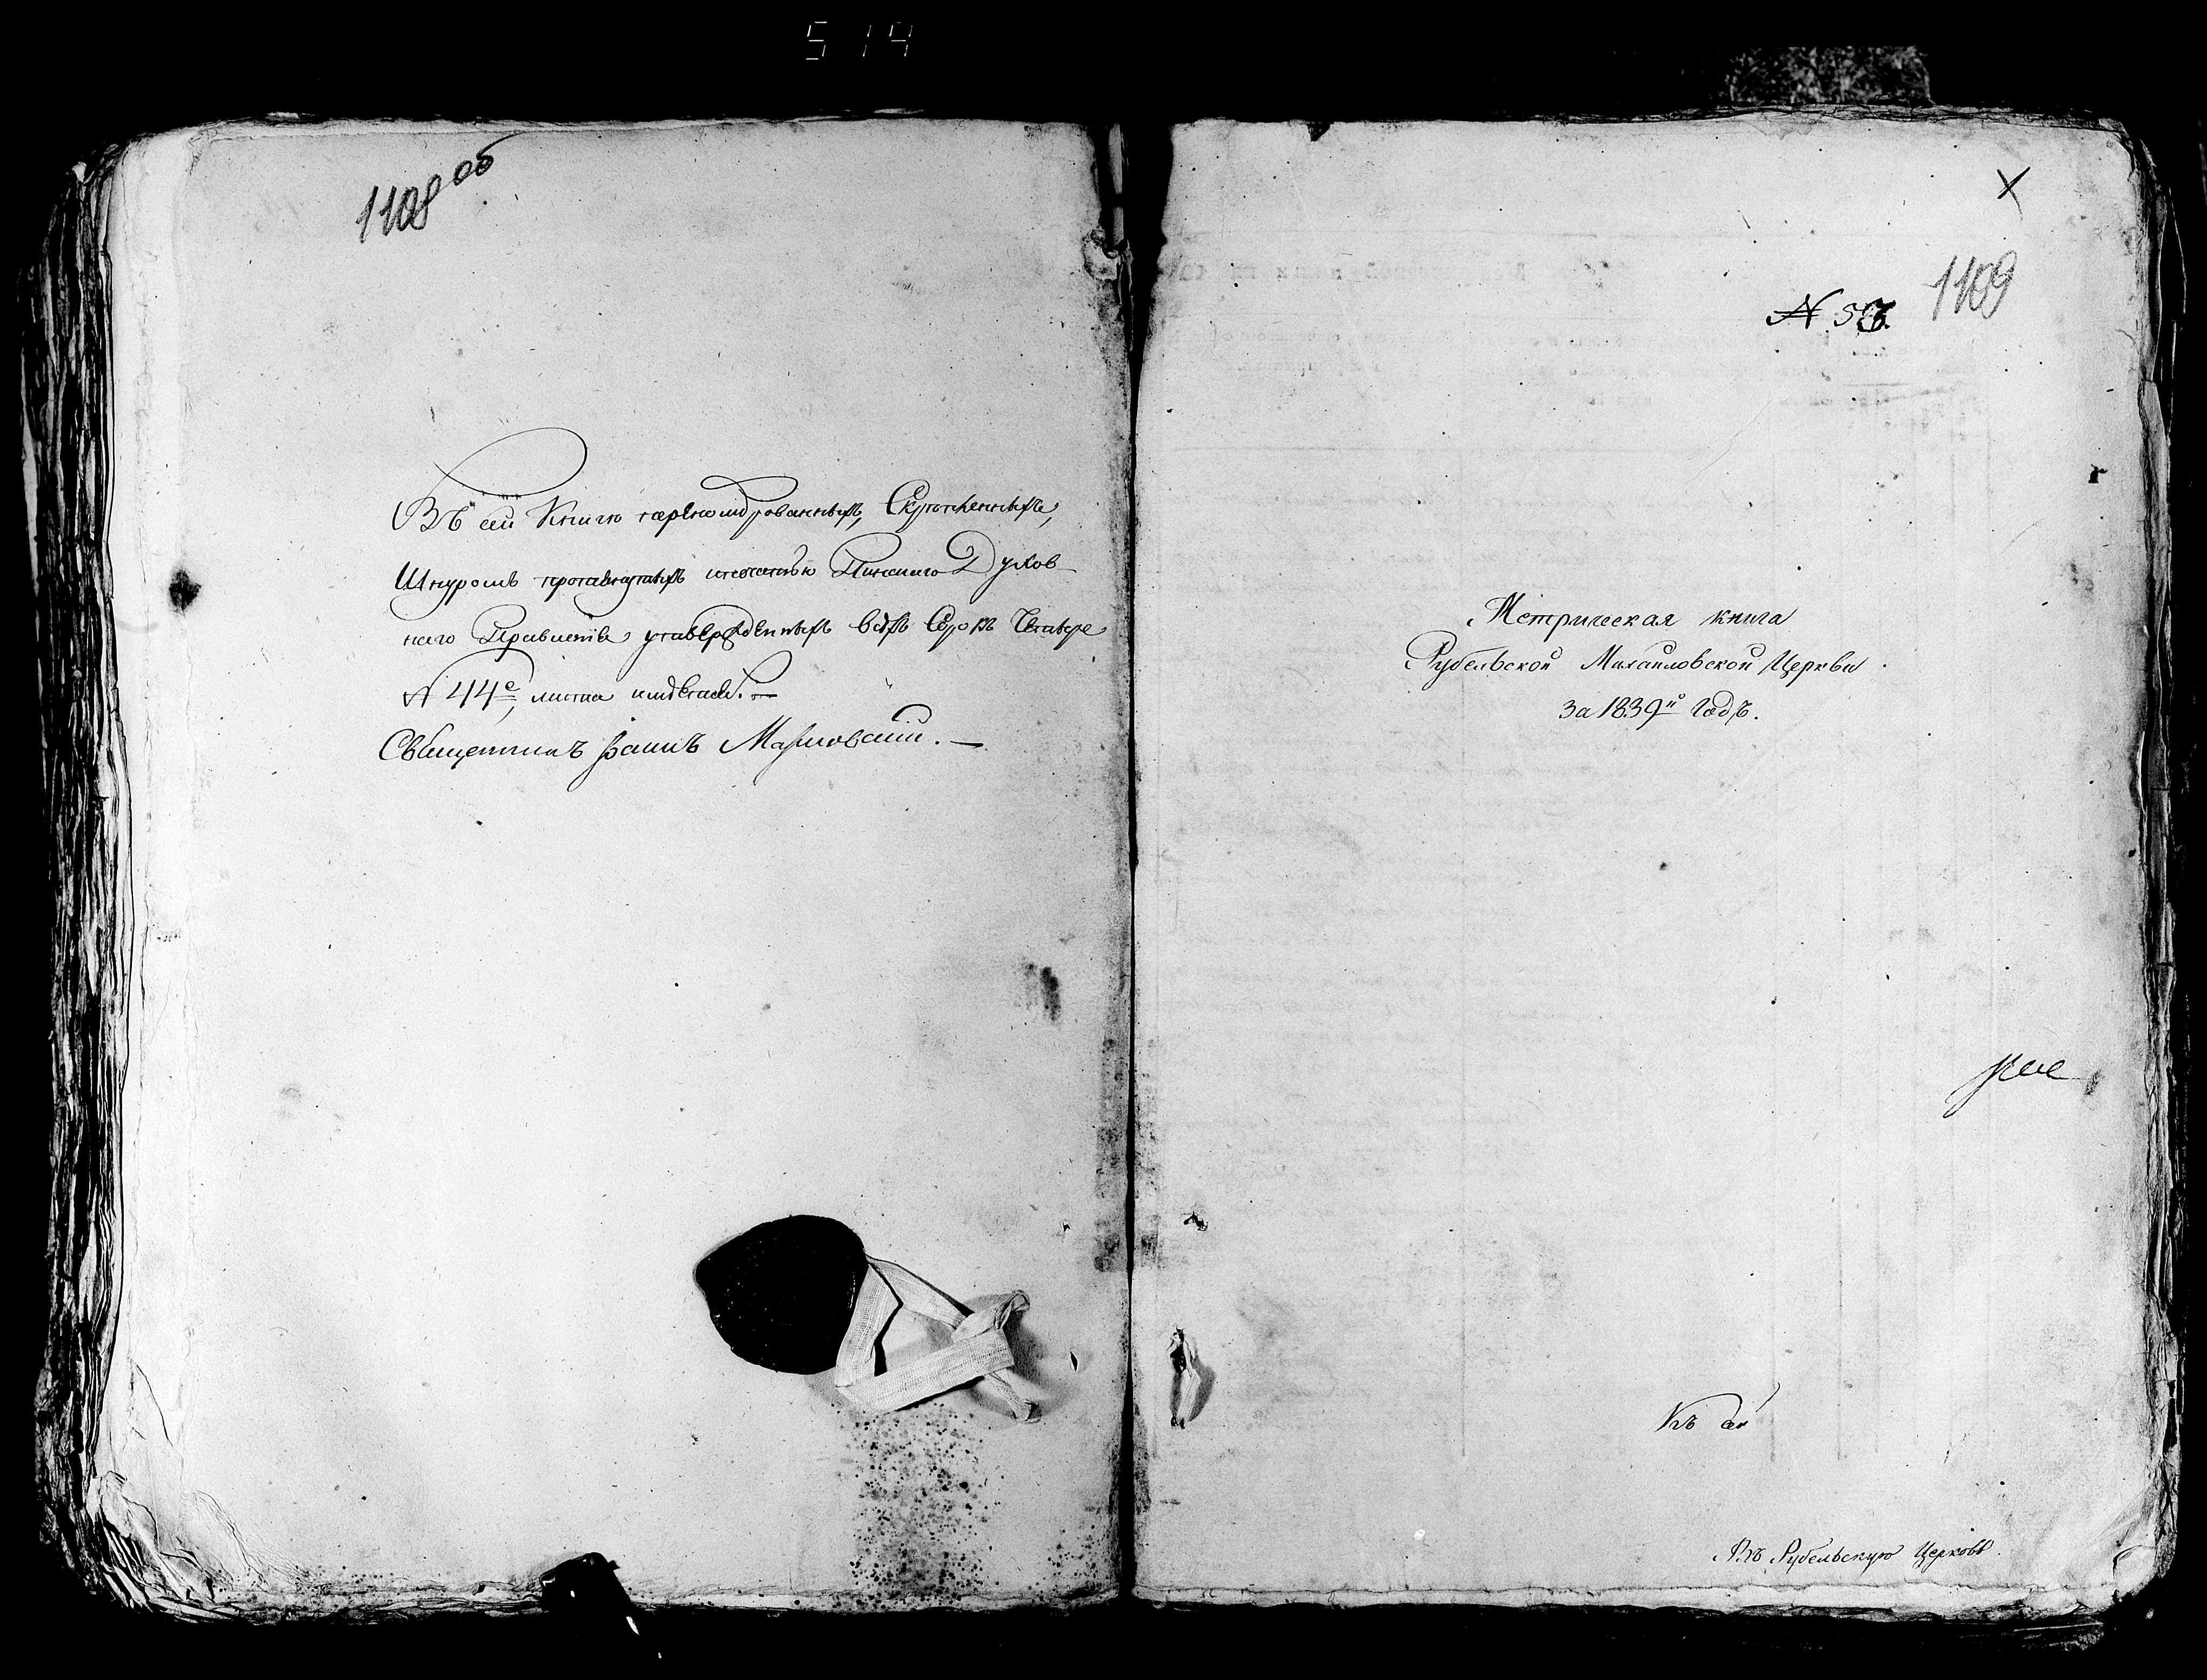 514
1108 об
Въ сей Книги паренумерованныхъ, Скрепленныхъ,
Шнуромъ протянутыхъ и печатью Пинскаго Духов
наго Правленія утвержденныхъ всѣхъ Сорокъ Четыре
№ 44е, листа имѣется. —
Священникъ Іоаннъ
X
1109
№
Метрическая книга
Рубельской Михайловской Церкви
за 1839й Годъ.
Въ Рубельскую Церковь.